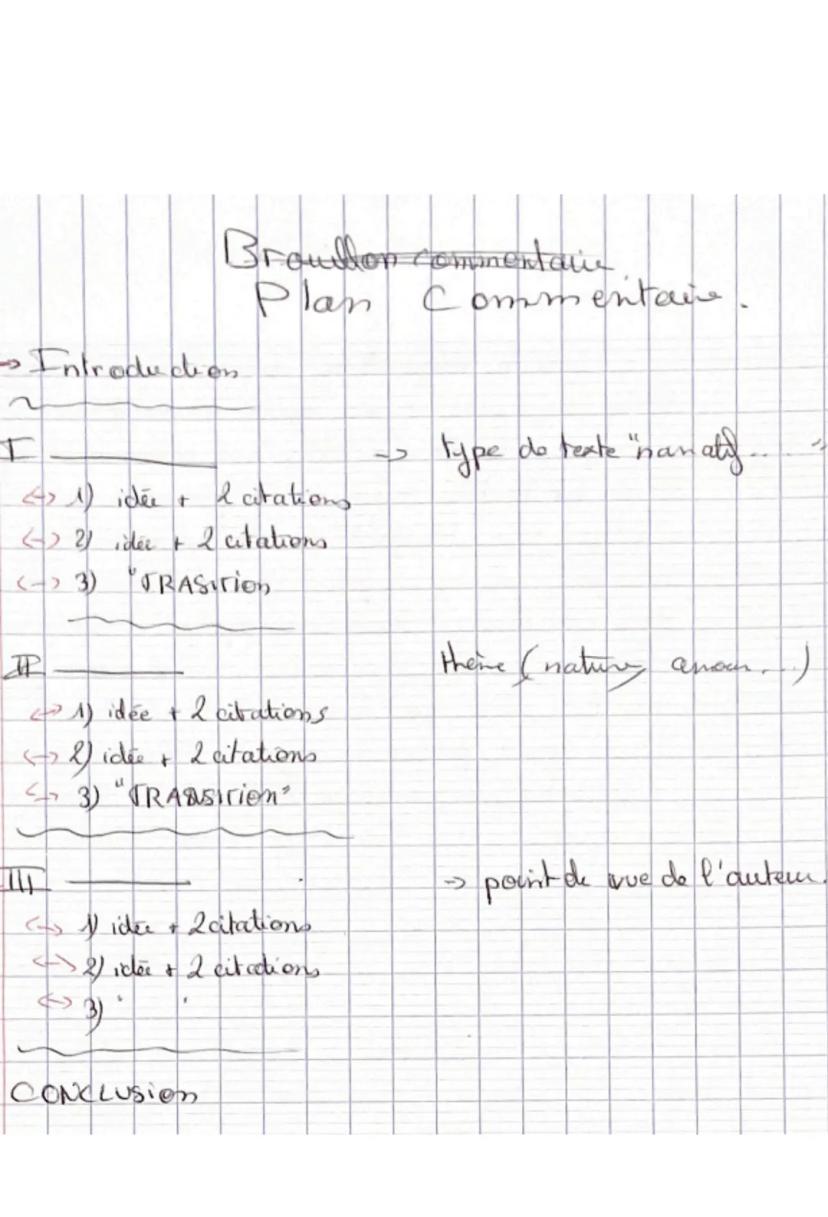 Brouillon commentaire
Plan Commentaire.
→ Introduction
I → type de texte "narratif.. "
↔ 1) idée + 2 citations
↔ 2) idée + 2 citations
↔ 3) "TRASITion
II thème (nature, amour...)
↔ 1) idée + 2 citations
↔ 2) idée + 2 citations
↔ 3) "TRANSITion"
III → point de vue de l'auteur.
↔ 1) idée + 2 citations
↔ 2) idée + 2 citations
↔ 3) " "
CONCLUSion